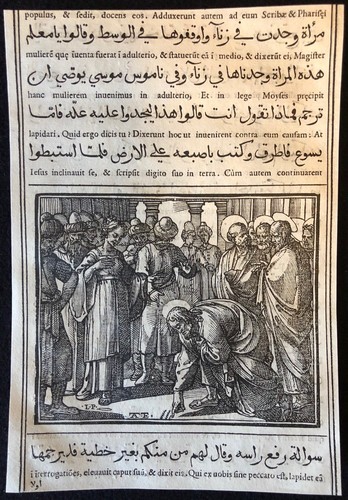 populus, & sedit, docens eos. Adduxerunt autem ad eum Scribæ & Pharisęi
مرأة وجدت في زناء واوقفوها في الوسط وقالوا يا معلم
mulierē quę ĩuenta fuerat ĩ adulterio, & statuerūt eā ĩ medio, & dixerūt ei, Magister
هذه المراة وجدناها في زناء وفي ناموس موسي يوصي ان
hanc mulierem inuenimus in adulterio, Et in lege Moyses pręcipit
ترجم فماذا تقول انت قالوا هذا ليجدوا عليه علة فاما
lapidari. Quid ergo dicis tu? Dixerunt hoc ut inuenirent contra eum causam: At
يسوع فاطرق وكتب باصبعه علي الارض فلما استبطوا
Iesus inclinauit se, & scripsit digito suo in terra. Cùm autem continuarent
L P
ATE
سواله رفع راسه وقال لهم من منكم بغير خطية فليرجمها
ĩ ĩterrogatiōes, eleuauit caput suū, & dixit eis. Qui ex uobis sine peccato est, lapidet eā